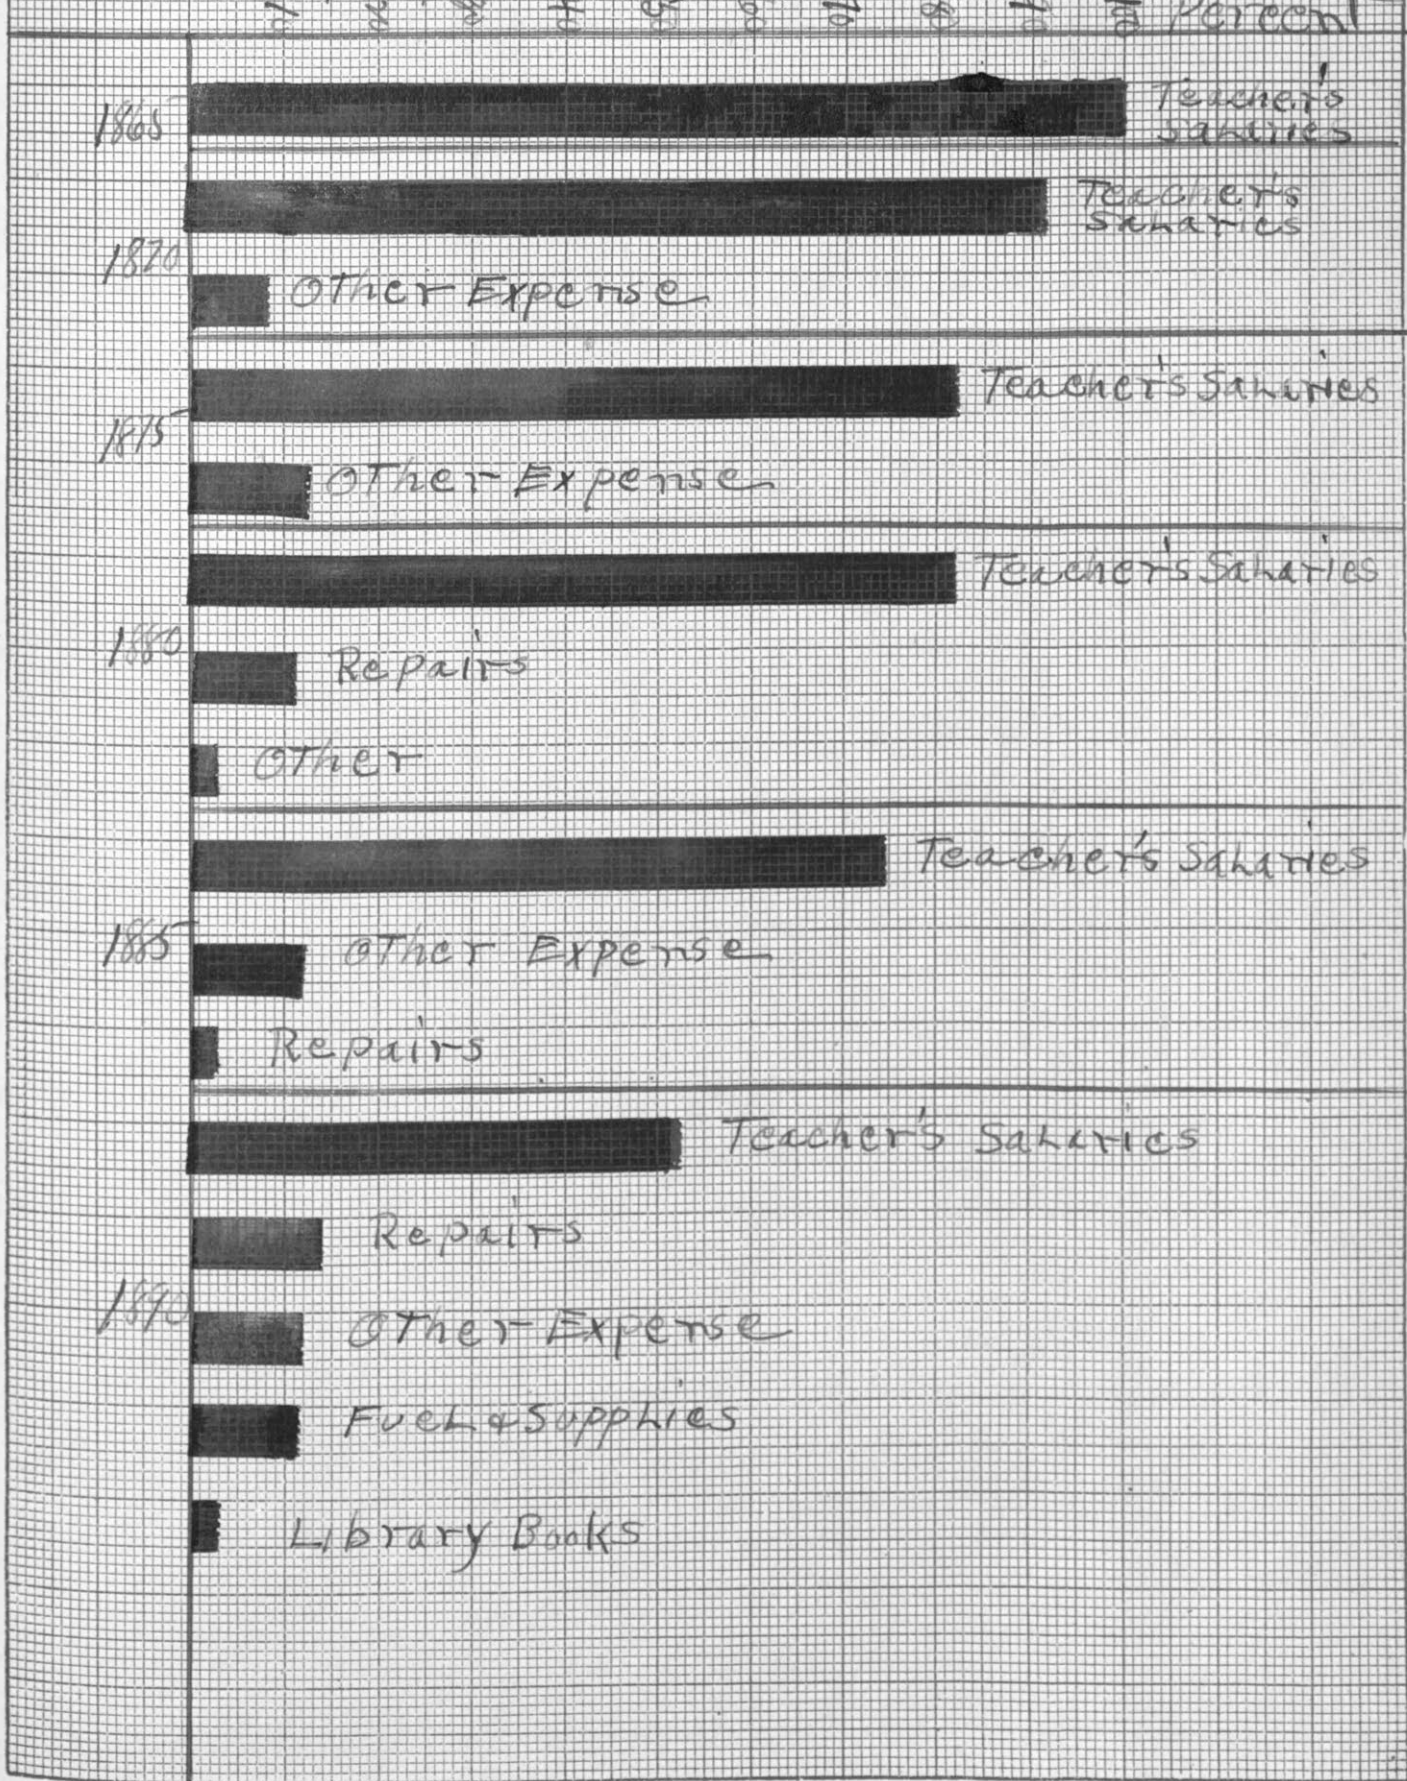 10 20 30 40 50 60 70 80 90 100 Percent
1865
Teacher's
Salaries
Teacher's
Salaries
1870
Other Expense
Teacher's Salaries
1875
Other Expense
Teacher's Salaries
1880
Repairs
Other
Teacher's Salaries
1885
Other Expense
Repairs
Teacher's Salaries
Repairs
1890
Other Expense
Fuel & Supplies
Library Books